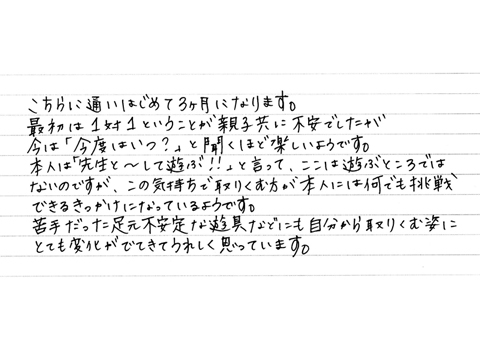 こちらに通いはじめて3ヶ月になります。
最初は1対1ということが親子共に不安でしたが
今は「今度はいつ?」と聞くほど楽しいようです。
本人は「先生と～して遊ぶ!!」と言って、ここは遊ぶところでは
ないのですが、この気持ちで取りくむ方が本人には何でも挑戦
できるきっかけになっているようです。
苦手だった足元不安定な遊具などにも自分から取りくむ姿に
とても変化がでてきてうれしく思っています。